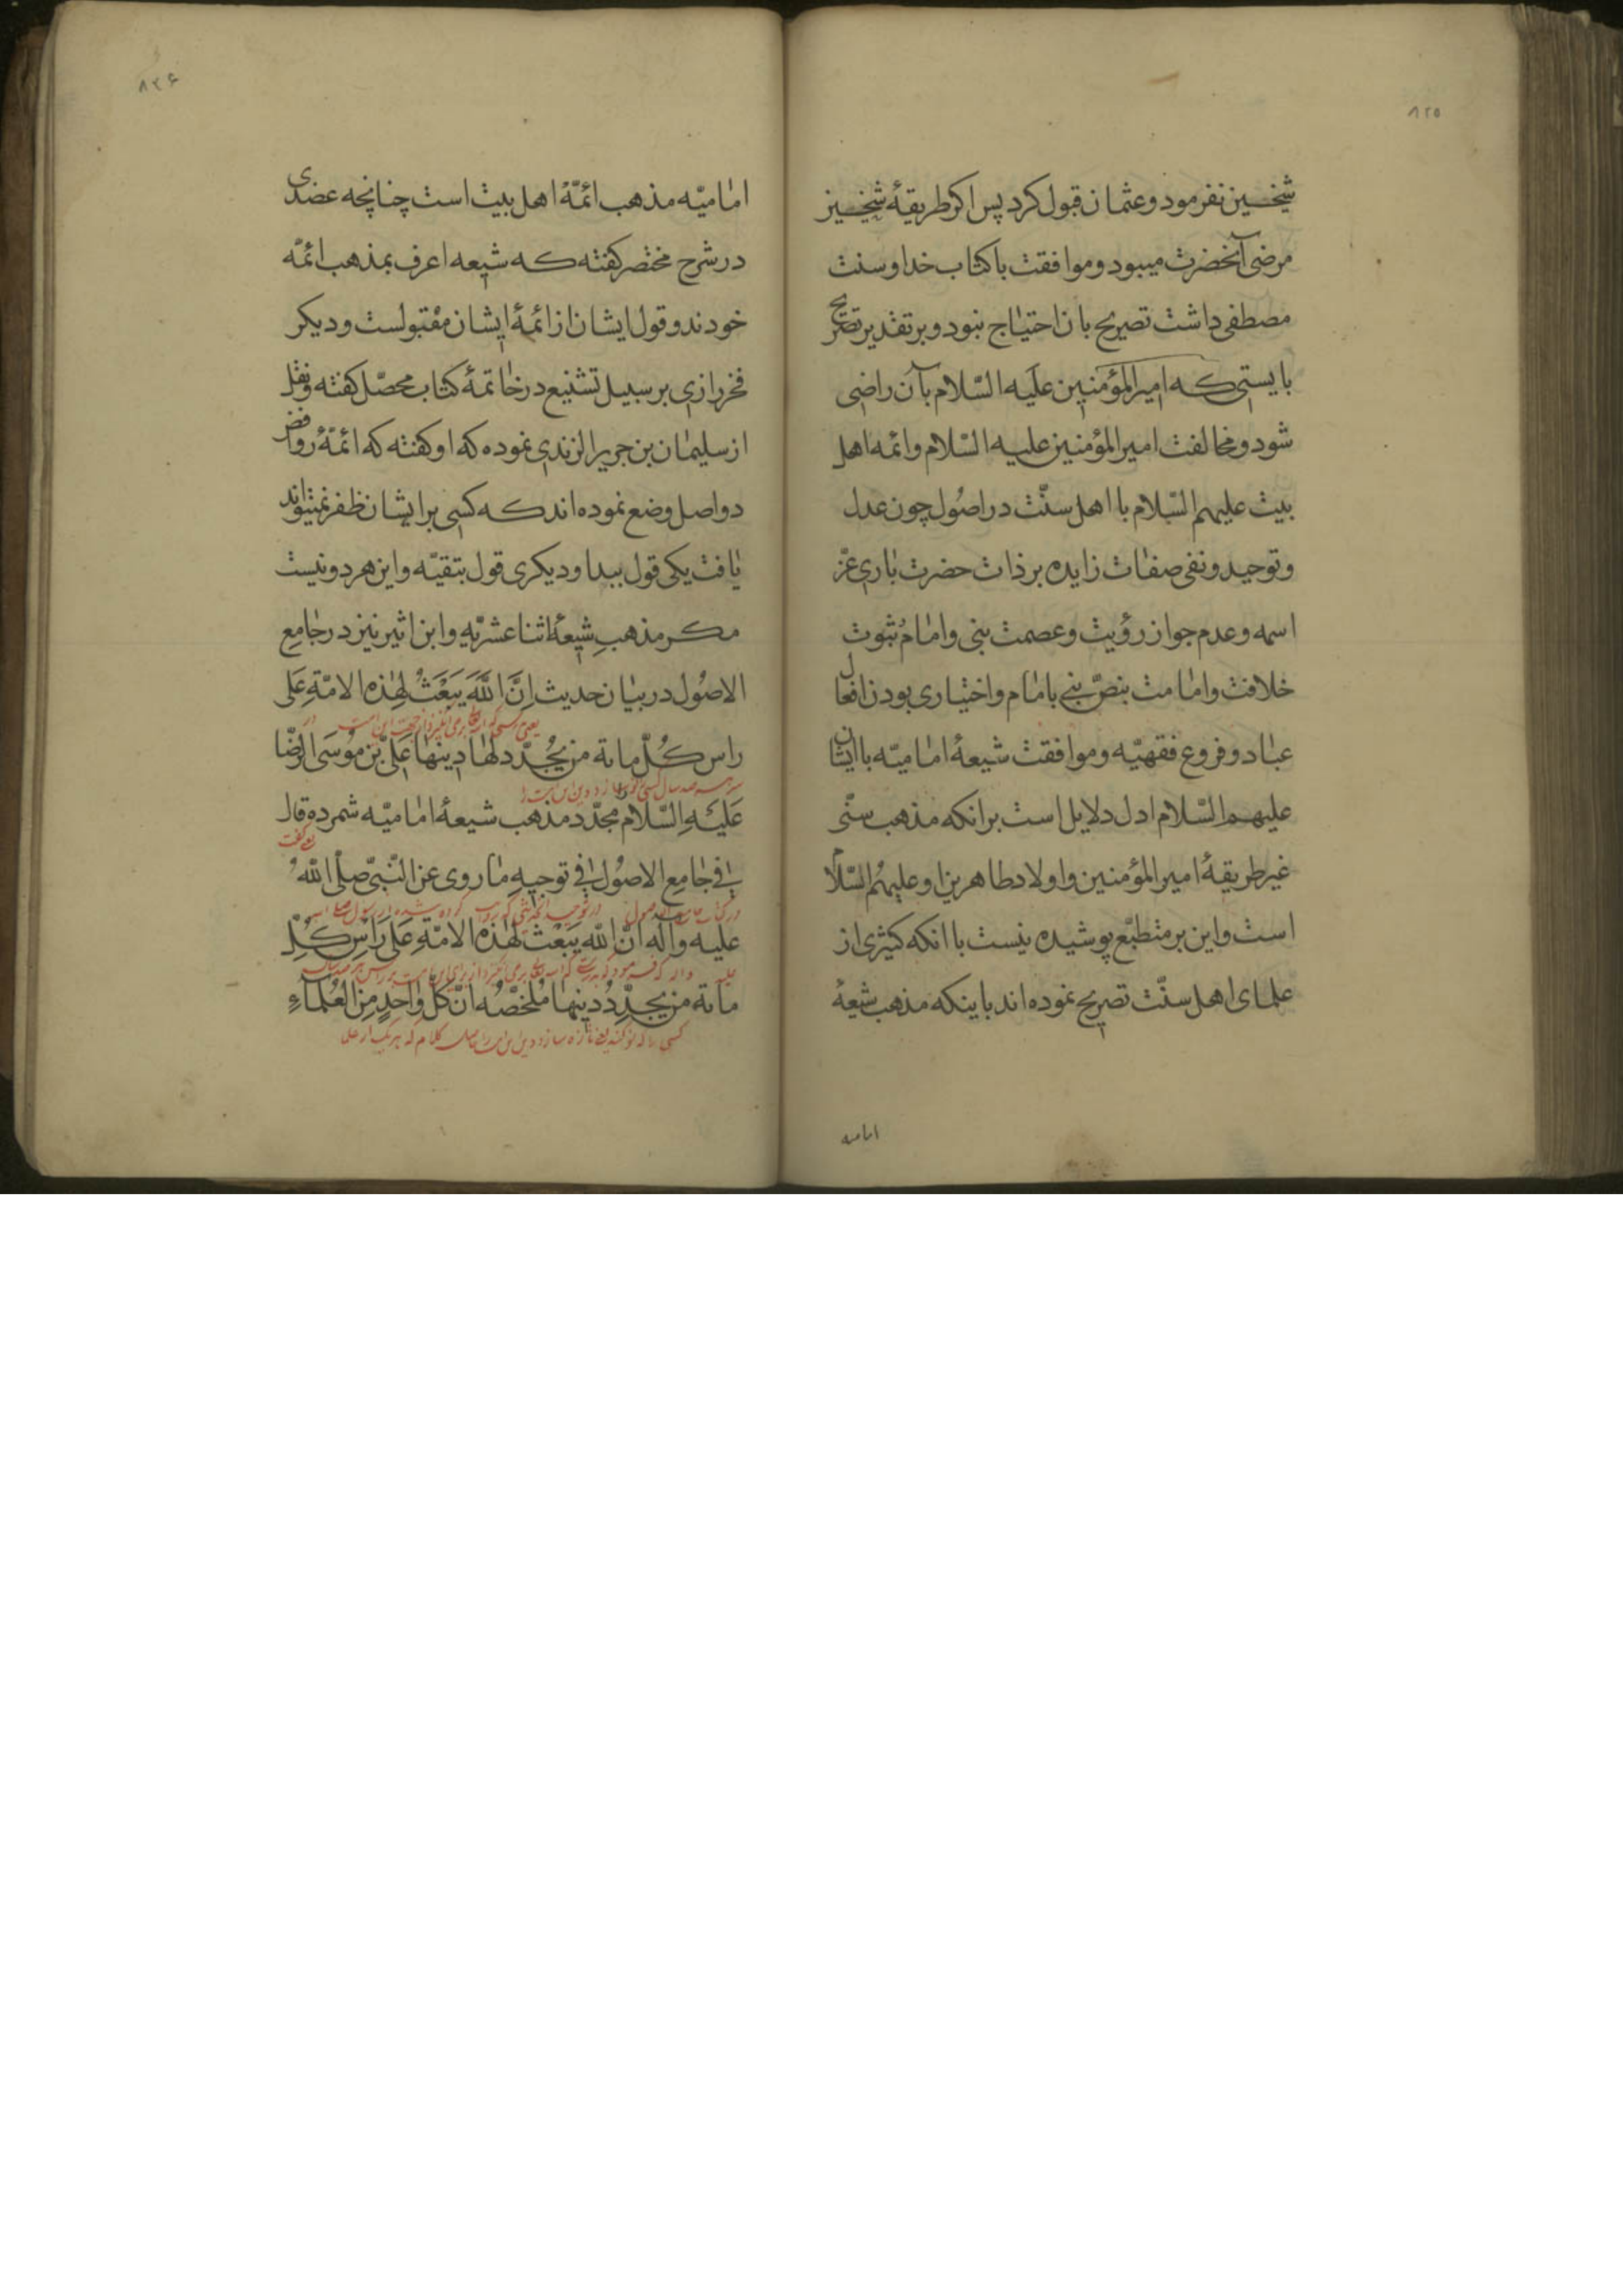 ۸۲۵
شیخین نفرمود و عثمان قبول کرد پس اکر طریقهٔ شیخین
مرضی آنحضرت میبود و موافقت با کتاب خدا و سنت
مصطفی داشت تصریح بان احتیاج نبود و بر تقدیر تصریح
بایستی که امیرالمؤمنین علیه السّلام بآن راضی
شود و مخالفت امیرالمؤمنین علیه السّلام و ائمه اهل
بیت علیهم السّلام با اهل سنّت در اصُول چون عدل
و توحید و نفی صفات زایده بر ذات حضرت باری عزّ
اسمه و عدم جواز رؤیت و عصمت نبی و امام و ثبوت
خلافت و امامت بنصّ نبی با امام و اختیاری بودن افعال
عباد و فروع فقهیّه و موافقت شیعهٔ امامیّه با ایشان
علیهم السّلام ادل دلایل است بر انکه مذهب سنّی
غیر طریقهٔ امیرالمؤمنین و اولاد طاهرین او علیهُم السّلام
است و این بر متطبّع پوشیده نیست با انکه کثیری از
علمای اهل سنّت تصریح نموده اند باینکه مذهب شیعهٔ
امامیه
۸۲۶
امامیّه مذهب ائمّهٔ اهل بیت است چنانچه عضدی
در شرح مختصر کفته که شیعه اعرف بمذهب ائمّه
خودند و قول ایشان از ائمهٔ ایشان مقبولست و دیکر
فخر رازی بر سبیل تشنیع در خاتمهٔ کتاب محصّل کفته و نقل
از سلیمان بن جریر الزندی نموده که او کفته که ائمّهٔ روافض
دو اصل وضع نموده اند که کسی بر ایشان ظفر نمیتواند
یافت یکی قول ببدا و دیکری قول بتقیّه و این هر دو نیست
مکر مذهبِ شیعهٔ اثنا عشریّه و ابن اثیر نیز در جامع
الاصُول در بیان حدیث اِنَّ اللّهَ یَبْعَثُ لِهٰذِه الامّةِ عَلَی
راس کُلّ مائة من یُجدّد لها دینها عَلیّ بن مُوسَی الرّضا
عَلیَهِ السّلام مجدّد مذهب شیعهٔ امامیّه شمرده قال
فی جامع الاصُول فی توجیهِ ما روی عن النّبیّ صلّی اللّهُ
علیه و اله انّ اللّه یَبْعَث لهٰذه الامّةِ عَلی رَاسِ کُلِّ
مائة من یجدِّدُ دینها مُلخّصُه انّ کلّ واحدٍ مِن العُلماءِ